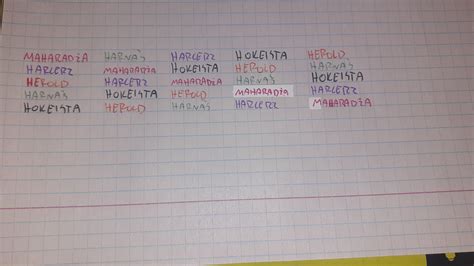 MAHARADŻA HARNAŚ HARCERZ HOKEISTA HEROLD
HARCERZ MAHARADŻA HOKEISTA HEROLD HARNAŚ
HEROLD HARCERZ MAHARADŻA HARNAŚ HOKEISTA
HARNAŚ HOKEISTA HEROLD MAHARADŻA HARCERZ
HOKEISTA HEROLD HARNAŚ HARCERZ MAHARADŻA